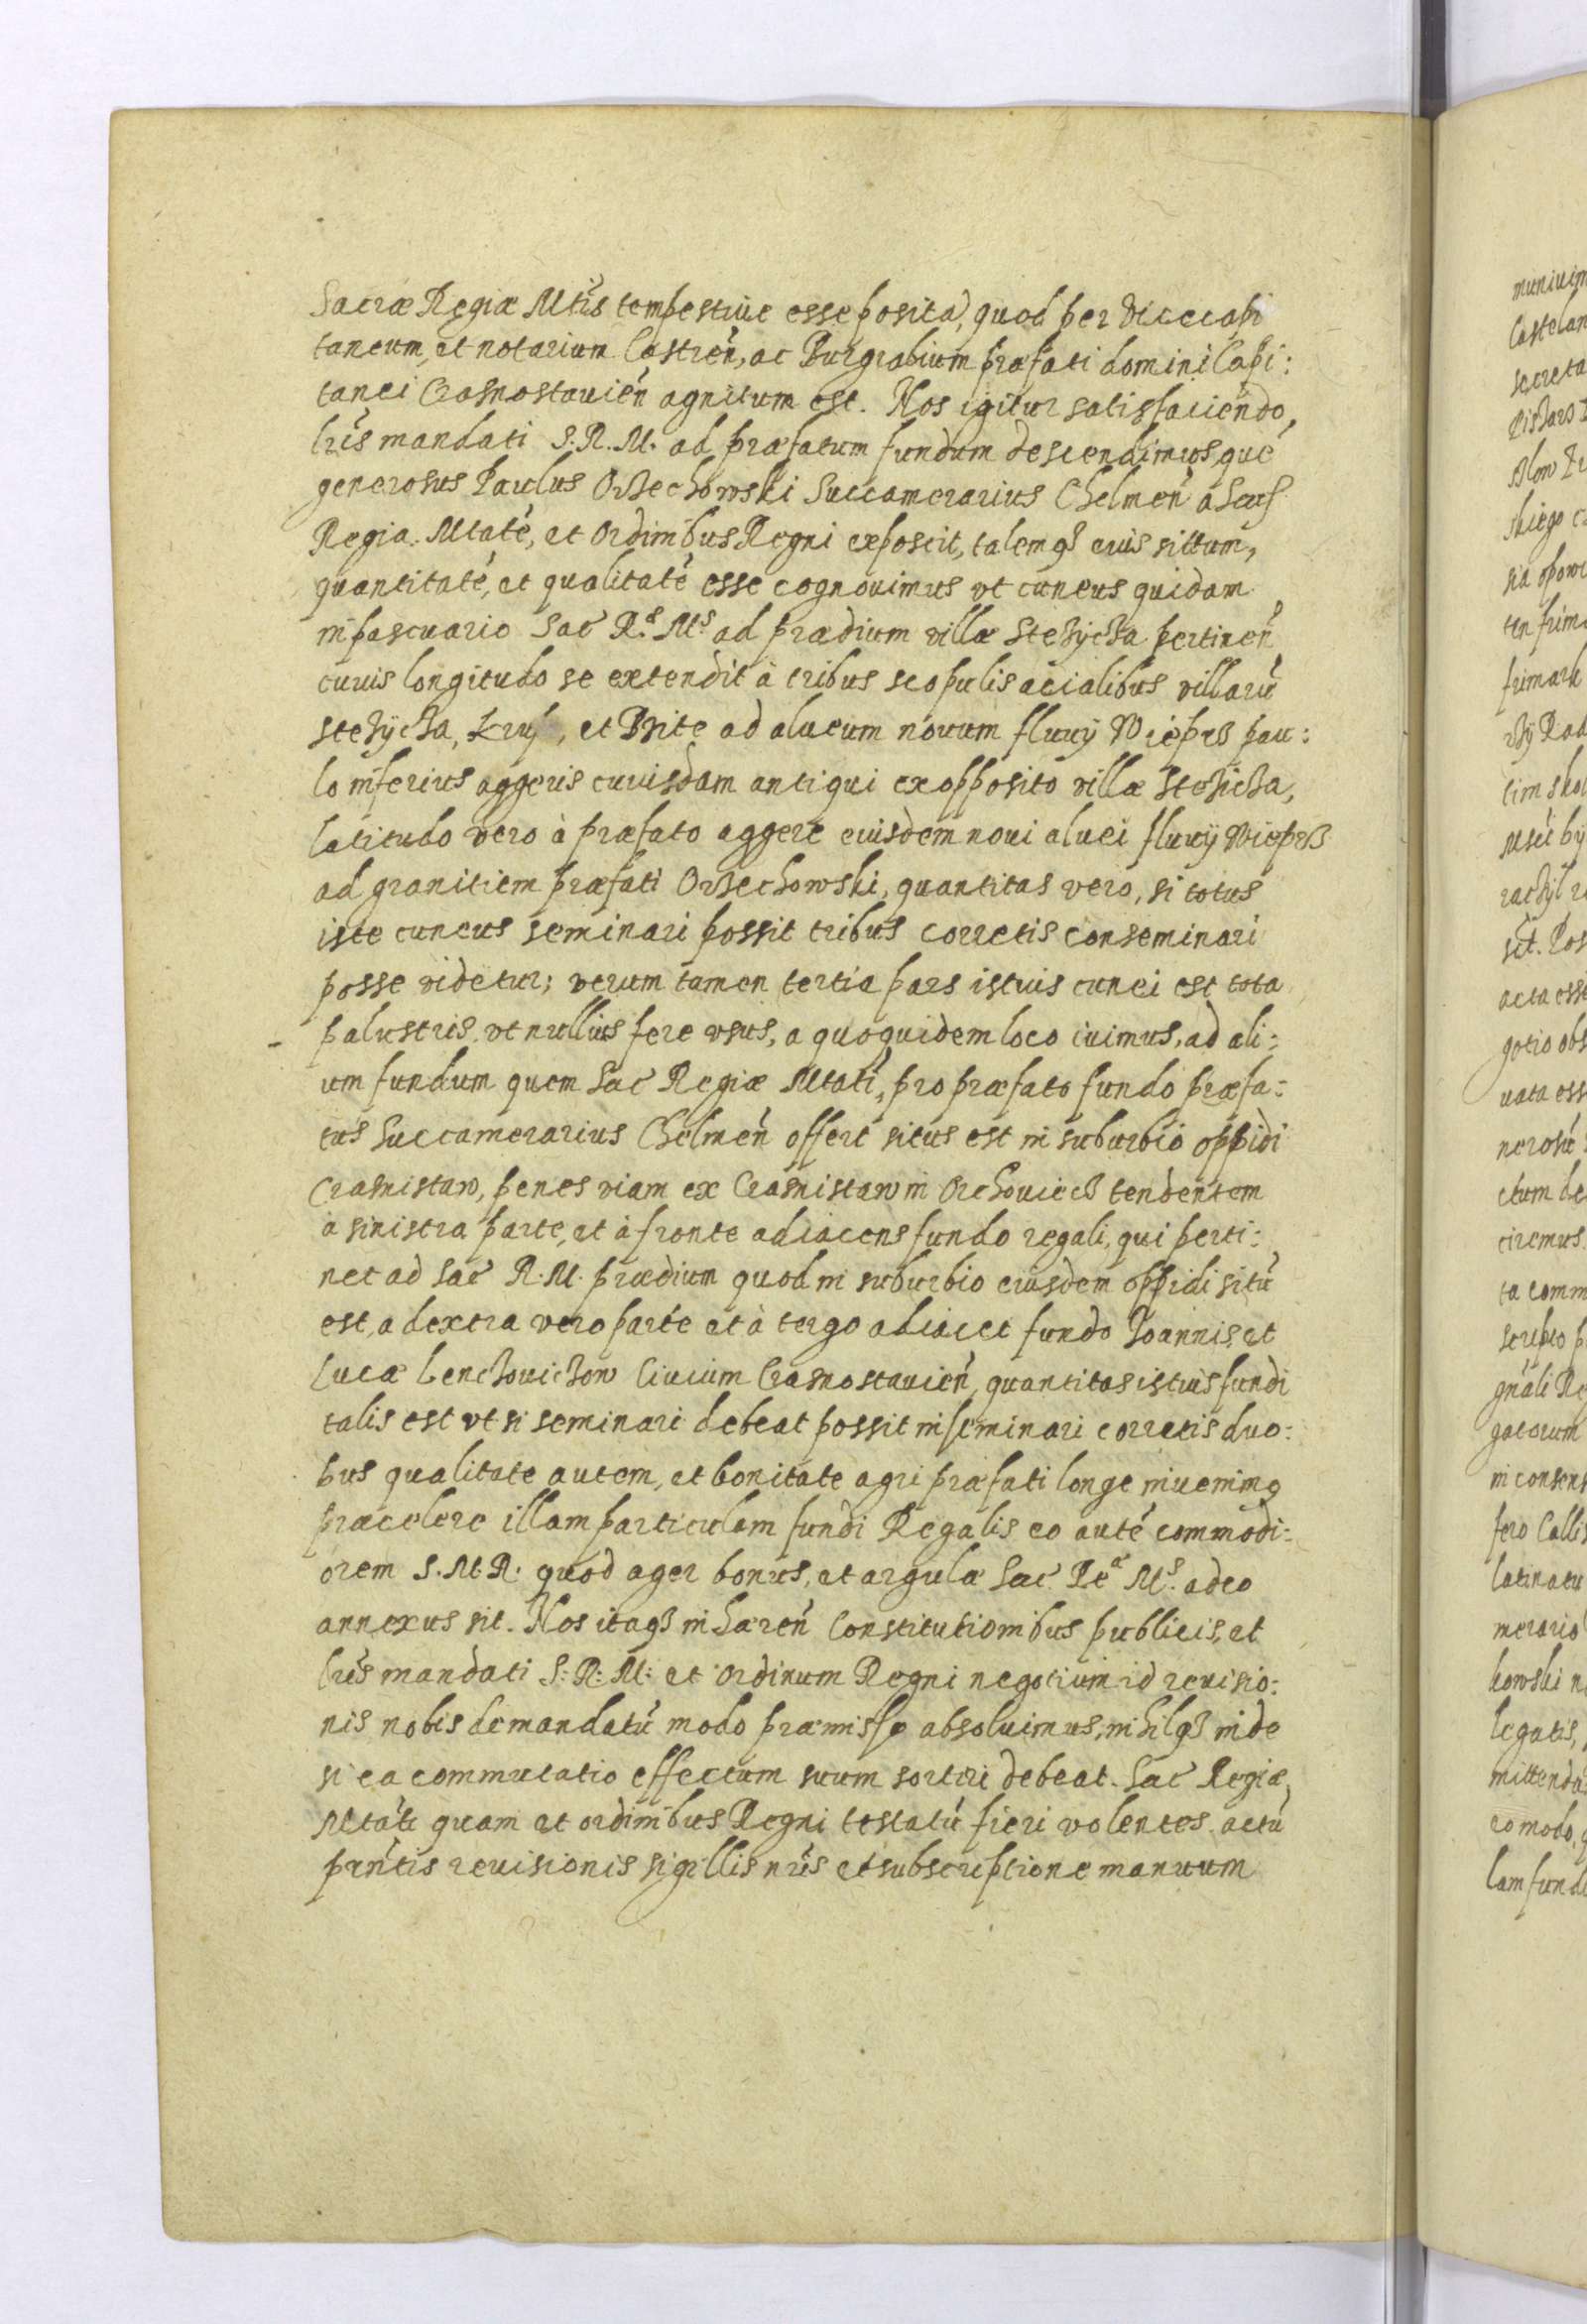 Sacræ Regiæ Mtis tempestiue esse posita, quod per Vicecapi
taneum, et notarium Castren, ac Burgrabium præfati domini Capi:
tanei Crasnostauien agnitum est. Nos igitur satisfaciendo,
lris mandati S. R. M. ad præfatum fundum descendimus, que
generosus Paulus Orzechowski Succamerarius Chelmen a Sac
Regia Mtate, et Ordinibus Regni exposcit, talemq eius sittum,
quantitate, et qualitate esse cognouimus vt cuneus quidam
in pascuario Sac R. Ms. ad prædium villæ Stezycza pertinen,
cuius longitudo se extendit à tribus scopulis acialibus villaru
Stezycza, et Bzite ad alueum nouum fluuÿ Wieprz pau:
lo inferius aggeris cuiusdam antiqui ex opposito villæ Stezicza,
latitudo vero à præfato aggere eiusdem noui aluei fluuÿ Wieprz
ad granitiem præfati Orzechowski, quantitas vero, si totus
iste cuneus seminari possit tribus corretis conseminari
posse videtur; verum tamen tertia pars istuis cunei est tota
palustris vt nullius fere vsus, a quoquidem loco iuimus, ad ali:
um fundum quem Sac Regiæ Mtati, pro præfato fundo præfa:
tus Succamerarius Chelmen offert situs est in suburbio oppidi
Crasnistaw, penes viam ex Crasnistaw in Orchouiecz tendentem
à sinistra parte, et à fronte adiacens fundo regali, qui perti:
net ad Sac R. M. prædium quod in suburbio eiusdem oppidi situ
est, a dextra vero parte et à tergo adiacet fundo Joannis, et
Lucæ Lenczouiczow Ciuium Crasnostauien, quantitas istuis fundi
talis est vt si seminari debeat possit inseminari corretis duo:
bus qualitate autem, et bonitate agri præfati longe inuenimq
præcelere illam particulam fundi Regalis eo aute commodi:
orem S. M. R. quod ager bonus, et argulæ Sac. Re Ms. adeo
annexus sit. Nos itaq inhæren Constitutionibus publicis, et
lris mandati S: R: M: et Ordinum Regni negotium id reuisio:
nis nobis demandatu modo præmisso absoluimus, nihilq inde
si ea commutatio effectum suum sortiri debeat. Sac Regiæ
Mtati quam et ordinibus Regni testatu fieri volentes actu
prntis reuisionis sigillis nris et subscriptione manuum